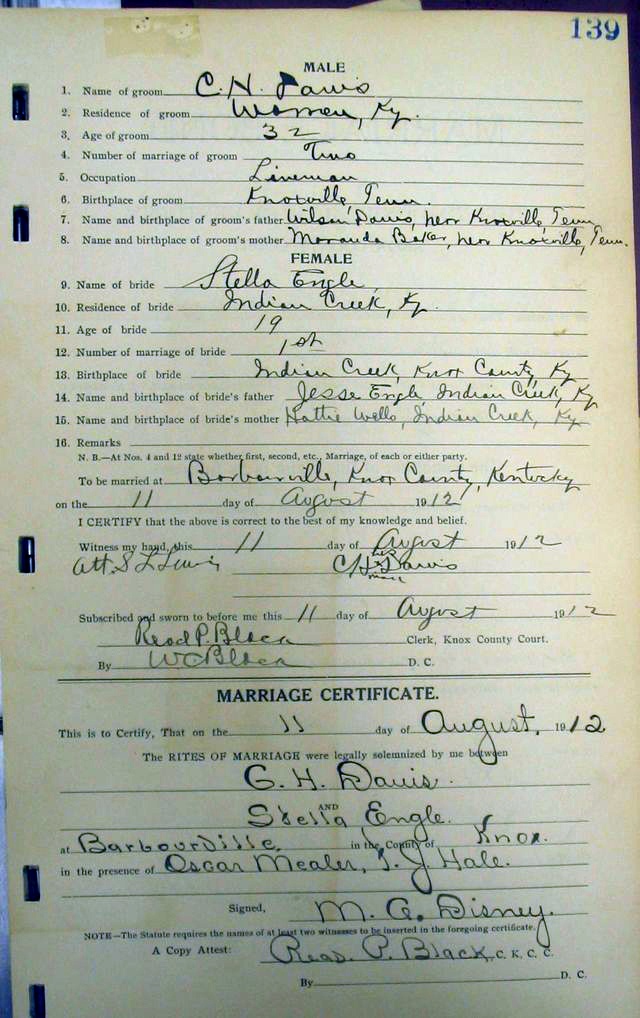 139
MALE
1. Name of groom C. H. Davis
2. Residence of groom Women, Ky.
3. Age of groom 32
4. Number of marriage of groom Two
5. Occupation Lineman
6. Birthplace of groom Knoxville, Tenn.
7. Name and birthplace of groom's father Wilson Davis, near Knoxville, Tenn.
8. Name and birthplace of groom's mother Baker, near Knoxville, Tenn.
FEMALE
9. Name of bride Stella Engle,
10. Residence of bride Indian Creek, Ky.
11. Age of bride 19
12. Number of marriage of bride 1st
13. Birthplace of bride Indian Creek, Knox County, Ky
14. Name and birthplace of bride's father Jesse Engle, Indian Creek, Ky
15. Name and birthplace of bride's mother Hattie Wells, Indian Creek, Ky
16. Remarks
N. B.—At Nos. 4 and 12 state whether first, second, etc., Marriage, of each or either party.
To be married at Barbourville, Knox County, Kentucky
on the 11 day of August 1912
I CERTIFY that the above is correct to the best of my knowledge and belief.
Witness my hand, this 11 day of August 1912
Att. S L Lewis C. H. his x mark Davis
Subscribed and sworn to before me this 11 day of August 1912
Read P. Black Clerk, Knox County Court.
By W C Black D. C.
MARRIAGE CERTIFICATE.
This is to Certify, That on the 11 day of August, 1912
The RITES OF MARRIAGE were legally solemnized by me between
C. H. Davis.
AND
Stella Engle.
at Barbourville in the County of Knox.
in the presence of Oscar Mealer, T. J. Hale.
Signed, M. C. Disney.
NOTE—The Statute requires the names of at least two witnesses to be inserted in the foregoing certificate.
A Copy Attest: Read. P. Black, C. K. C. C.
By D. C.